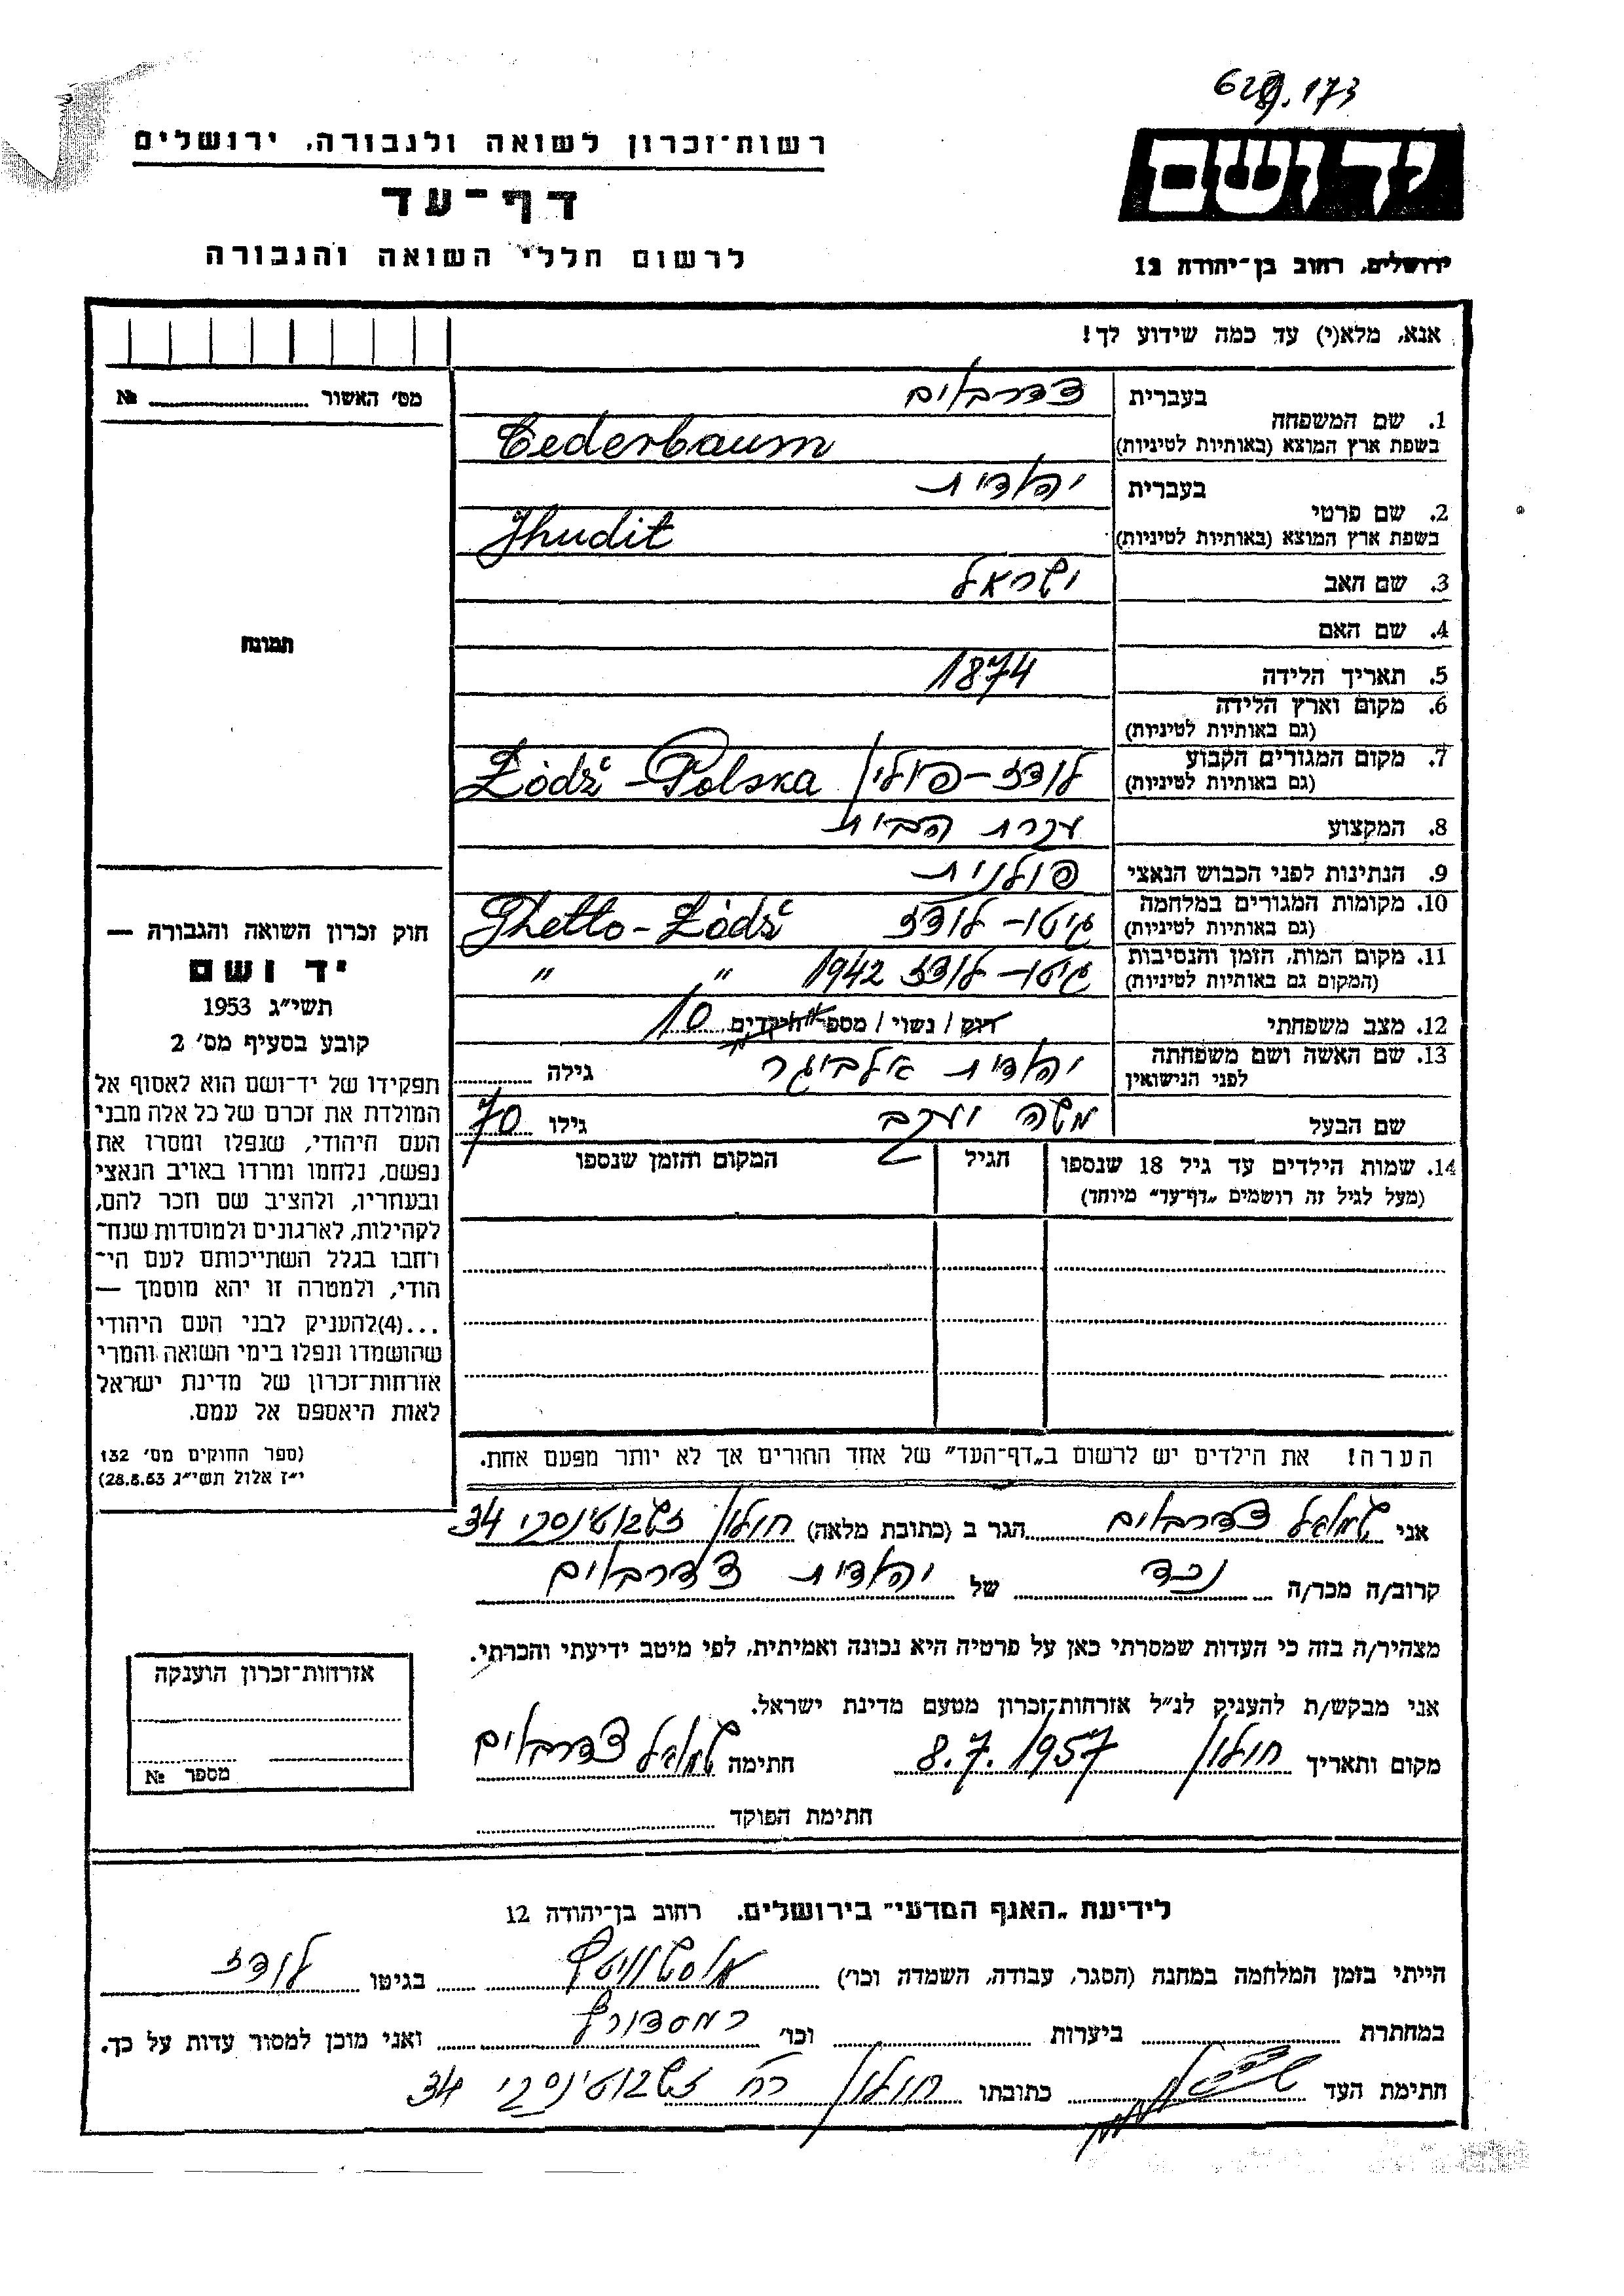 629.173
יד ושם
ירושלים, רחוב בן־יהודה 12
רשות־זכרון לשואה ולגבורה, ירושלים
דף־עד
לרשום חללי השואה והגבורה
אנא, מלא(י) עד כמה שידוע לך!
מס׳ האשור № ........
תמונה
1. שם המשפחה
בעברית צדרבוים
בשפת ארץ המוצא (באותיות לטיניות) Cederbaum
2. שם פרטי
בעברית יהודית
בשפת ארץ המוצא (באותיות לטיניות) Jhudit
3. שם האב ישראל
4. שם האם
5. תאריך הלידה 1874
6. מקום וארץ הלידה
(גם באותיות לטיניות)
7. מקום המגורים הקבוע לודז - פולין Łódź - Polska
(גם באותיות לטיניות)
8. המקצוע עקרת הבית
9. הנתינות לפני הכבוש הנאצי פולנית
10. מקומות המגורים במלחמה גיטו - לודז Ghetto - Łódź
(גם באותיות לטיניות)
11. מקום המות, הזמן והנסיבות גיטו - לודז 1942 " "
(המקום גם באותיות לטיניות)
12. מצב משפחתי רוק / נשוי / מספר הילדים 10
13. שם האשה ושם משפחתה יהודית גילה ........
לפני הנישואין
שם הבעל משה יעקב גילו 70
14. שמות הילדים עד גיל 18 שנספו הגיל המקום והזמן שנספו
(מעל לגיל זה רושמים „דף־עד" מיוחד)
הערה! את הילדים יש לרשום ב„דף־העד" של אחד ההורים אך לא יותר מפעם אחת.
חוק זכרון השואה והגבורה —
יד ושם
תשי״ג 1953
קובע בסעיף מס׳ 2
תפקידו של יד־ושם הוא לאסוף אל
המולדת את זכרם של כל אלה מבני
העם היהודי, שנפלו ומסרו את
נפשם, נלחמו ומרדו באויב הנאצי
ובעוזריו, ולהציב שם וזכר להם,
לקהילות, לארגונים ולמוסדות שנח־
רחבו בגלל השתייכותם לעם הי־
הודי, ולמטרה זו יהא מוסמך —
...(4)להעניק לבני העם היהודי
שהושמדו ונפלו בימי השואה והמרי
אזרחות־זכרון של מדינת ישראל
לאות היאספם אל עמם.
(ספר החוקים מס׳ 132
י״ז אלול תשי״ג 28.8.53)
אני שמואל צדרבוים הגר ב (כתובת מלאה) חולון ז'בוטינסקי 34
קרוב/ה מכר/ה נכד של יהודית צדרבוים
מצהיר/ה בזה כי העדות שמסרתי כאן על פרטיה היא נכונה ואמיתית, לפי מיטב ידיעתי והכרתי.
אני מבקש/ת להעניק לנ״ל אזרחות־זכרון מטעם מדינת ישראל.
מקום ותאריך חולון 8.7.1957 חתימה שמואל צדרבוים
חתימת הפוקד ........
אזרחות־זכרון הוענקה
מספר №
לידיעת „האגף המדעי" בירושלים, רחוב בן־יהודה 12
הייתי בזמן המלחמה במחנה (הסגר, עבודה, השמדה וכו׳) אושוויץ בגיטו לודז
במחתרת ........ ביערות ........ וכו׳ ואני מוכן למסור עדות על כך.
חתימת העד כתובתו חולון רח ז'בוטינסקי 34